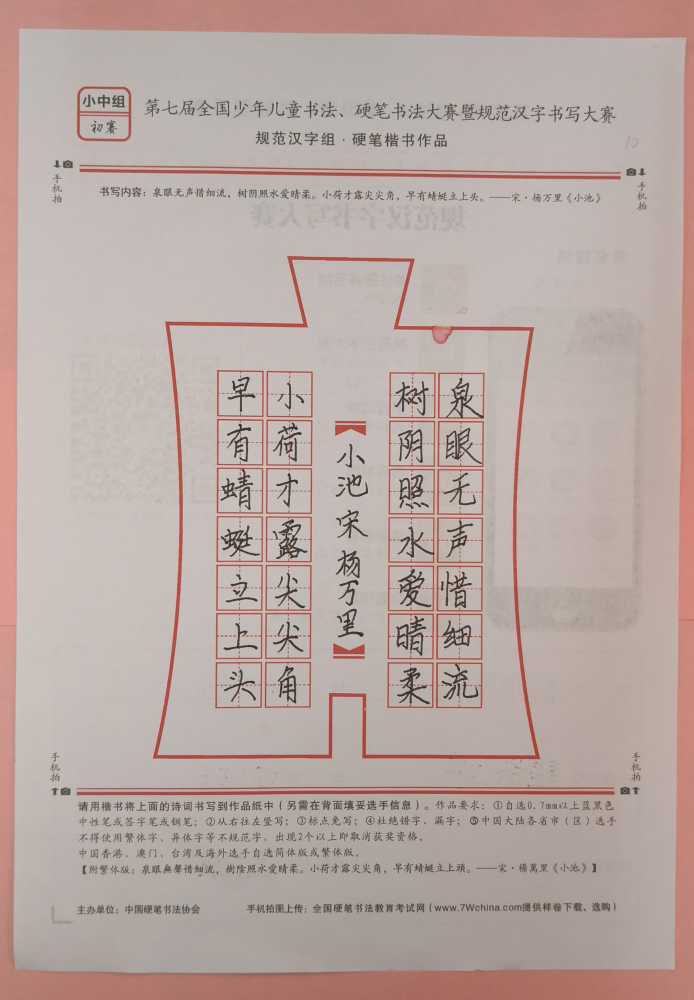 小中组
初赛
第七届全国少年儿童书法、硬笔书法大赛暨规范汉字书写大赛
规范汉字组·硬笔楷书作品
10
手机拍
手机拍
书写内容：泉眼无声惜细流，树阴照水爱晴柔。小荷才露尖尖角，早有蜻蜓立上头。——宋·杨万里《小池》
泉眼无声惜细流
树阴照水爱晴柔
小池宋杨万里
小荷才露尖尖角
早有蜻蜓立上头
手机拍
手机拍
请用楷书将上面的诗词书写到作品纸中（另需在背面填妥选手信息）。作品要求：①自选0.7mm以上蓝黑色
中性笔或签字笔或钢笔；②从右往左竖写；③标点免写；④杜绝错字、漏字；⑤中国大陆各省市（区）选手
不得使用繁体字、异体字等不规范字，出现2个以上即取消获奖资格。
中国香港、澳门、台湾及海外选手自选简体版或繁体版。
【附繁体版：泉眼無聲惜細流，樹陰照水愛晴柔。小荷才露尖尖角，早有蜻蜓立上頭。——宋·楊萬里《小池》】
主办单位：中国硬笔书法协会
手机拍图上传：全国硬笔书法教育考试网（www.7Wchina.com提供样卷下载、选购）